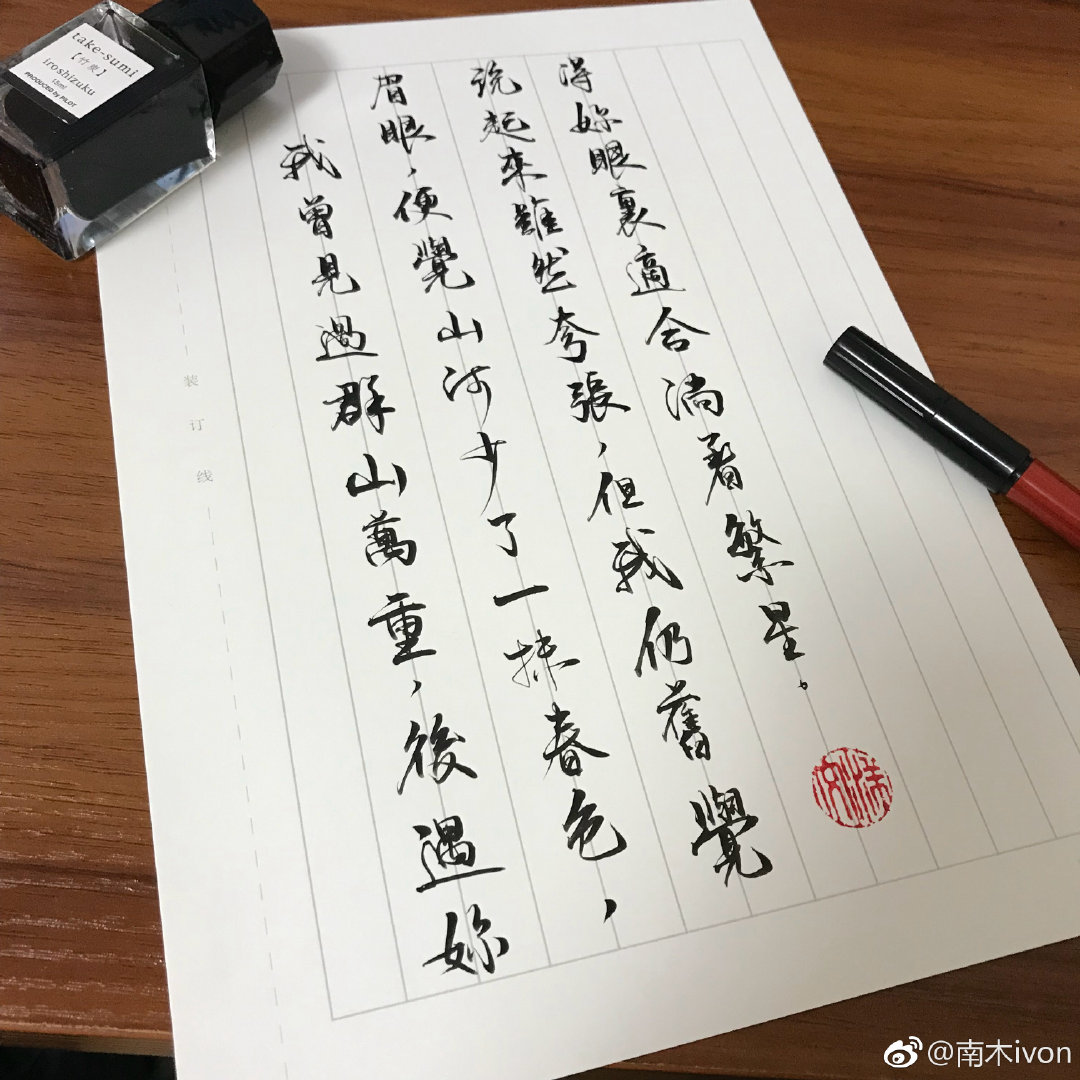 take-sumi
【竹炭】
iroshizuku
15ml
PRODUCED by PILOT
装订线
我曾見過群山萬重，後遇妳
眉眼，便覺山河少了一抹春色，
説起來雖然夸張，但我仍舊覺
得妳眼裏適合淌着繁星。
@南木ivon